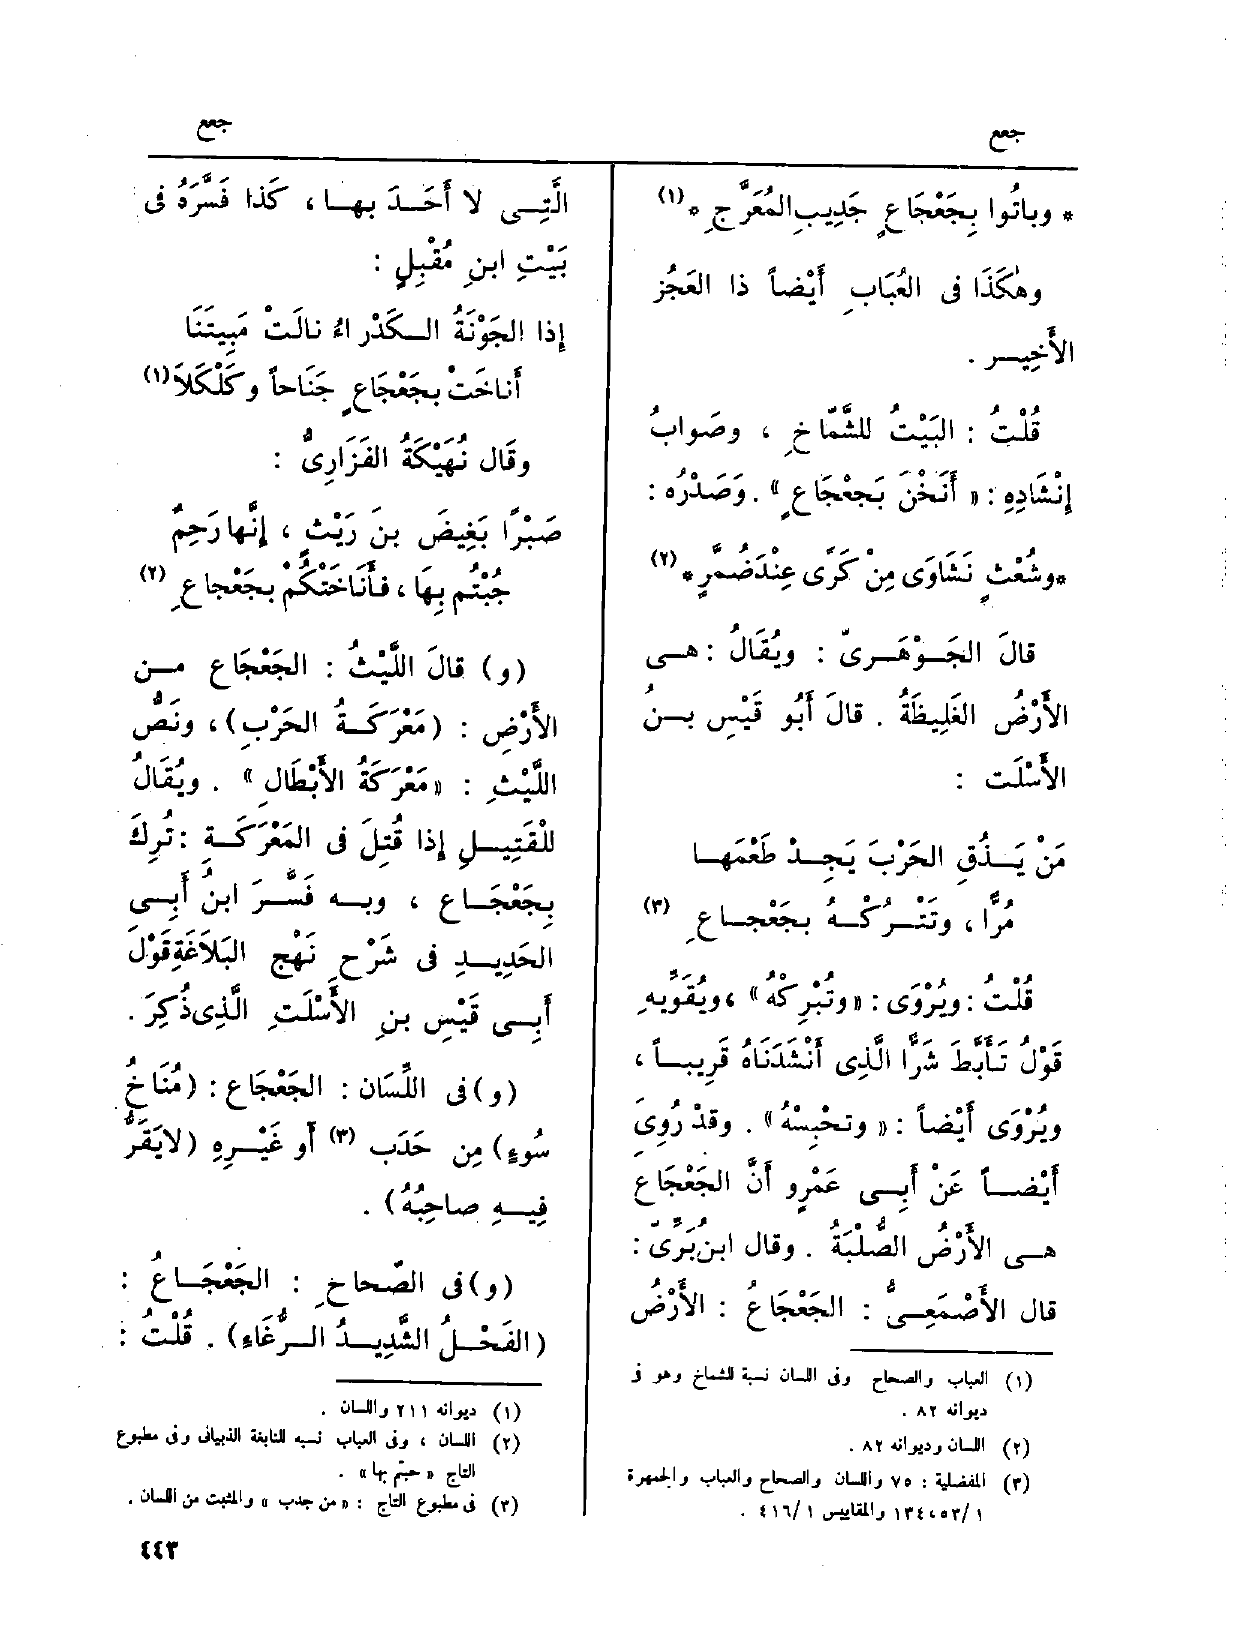 جعع
* وباتُوا بِجَعْجَاعٍ جَدِيبِ المُعَرَّجِ * (١)
وهٰكَذَا فى العُبَابِ أَيْضاً ذا العَجُز
الأَخِيـر .
قُلْتُ : البَيْتُ للشَّمّاخِ ، وصَوابُ
إِنْشَادِهِ : « أَنَخْنَ بَجَعْجَاعٍ » . وَصَدْرُه :
* وشُعْثٍ نَشَاوَى مِنْ كَرًى عِنْدَ ضُمَّرٍ * (٢)
قالَ الجَـوْهَـرىّ : ويُقَالُ : هـى
الأَرْضُ الغَلِيظَةُ . قالَ أَبُو قَيْسِ بـنُ
الأَسْلَت :
مَنْ يَـذُقِ الحَرْبَ يَجِـدْ طَعْمَهـا
مُرًّا ، وتَتْـرُكْـهُ بجَعْجـاعِ (٣)
قُلْتُ : ويُرْوَى : « وتُبْرِكْهُ » ، ويُقَوِّيهِ
قَوْلُ تَأَبَّطَ شَرًّا الَّذِى أَنْشَدْنَاهُ قَرِيبـاً ،
ويُرْوَى أَيْضاً : « وتَحْبِسْهُ » . وقَدْ رُوِىَ
أَيْضـاً عَنْ أَبِـى عَمْرٍو أَنَّ الجَعْجَاعَ
هـى الأَرْضُ الصُّلْبَةُ . وقال ابن بَرِّىّ :
قال الأَصْمَعِـىُّ : الجَعْجَاعُ : الأَرْضُ
(١) العباب والصحاح وفى اللسان نسبة للشماخ وهو فى
ديوانه ٨٢ .
(٢) اللسان وديوانه ٨٢ .
(٣) المفضلية : ٧٥ واللسان والصحاح والعباب والجمهرة
١/ ١٣٤،٥٣ والمقاييس ١/ ٤١٦ .
جعع
الَّتِـى لا أَحَـدَ بهـا ، كَذا فَسَّرَهُ فى
بَيْتِ ابنِ مُقْبِلٍ :
إذا الجَوْنَةُ الـكَدْراءُ نالَتْ مَبِيتَنَا
أَناخَتْ بجَعْجَاعٍ جَنَاحاً وكَلْكَلاَ (١)
وقَال نُهَيْكَةُ الفَزَارِىُّ :
صَبْرًا بَغِيضَ بنَ رَيْثٍ ، إِنَّها رَحِمٌ
حُبْتُم بِهَا ، فأَناخَتْكُمْ بجَعْجاعِ (٢)
(و) قالَ اللَّيْثُ : الجَعْجَاعُ مـن
الأَرْضِ : (مَعْرَكَـةُ الحَرْبِ) ، ونَصُّ
اللَّيْثِ : « مَعْرَكَةُ الأَبْطَالِ » . ويُقَالُ
للْقَتِيـلِ إذا قُتِلَ فى المَعْرَكَـةِ : تُرِكَ
بِجَعْجَـاع ، وبـه فَسَّـرَ ابنُ أَبِـى
الحَدِيـدِ فى شَرْحِ نَهْج البَلاَغَةِ قَوْلَ
أَبِـى قَيْسِ بنِ الأَسْلَتِ الَّذِى ذُكِرَ .
(و) فى اللِّسَان : الجَعْجَاع : (مُنَاخُ
سُوءٍ) مِن حَدَب (٣) أَو غَيْـرِهِ (لايَقَرُّ
فِيـهِ صاحِبُهُ) .
(و) فى الصّحاحِ : الجَعْجَـاعُ :
(الفَحْـلُ الشَّدِيـدُ الـرُّغَاءِ) . قُلْتُ :
(١) ديوانه ٢١١ واللسان .
(٢) اللسان ، وفى العباب نسبه للنابغة الذبيانى وفى مطبوع
التاج « جئتم بها » .
(٣) فى مطبوع التاج : « من جدب » والمثبت من اللسان .
٤٤٣